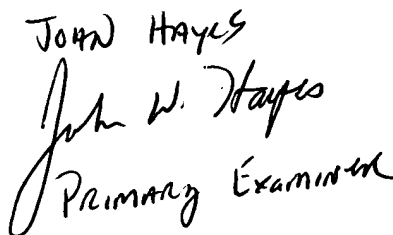 JOHN HAYES
John W. Hayes
PRIMARY EXAMINER